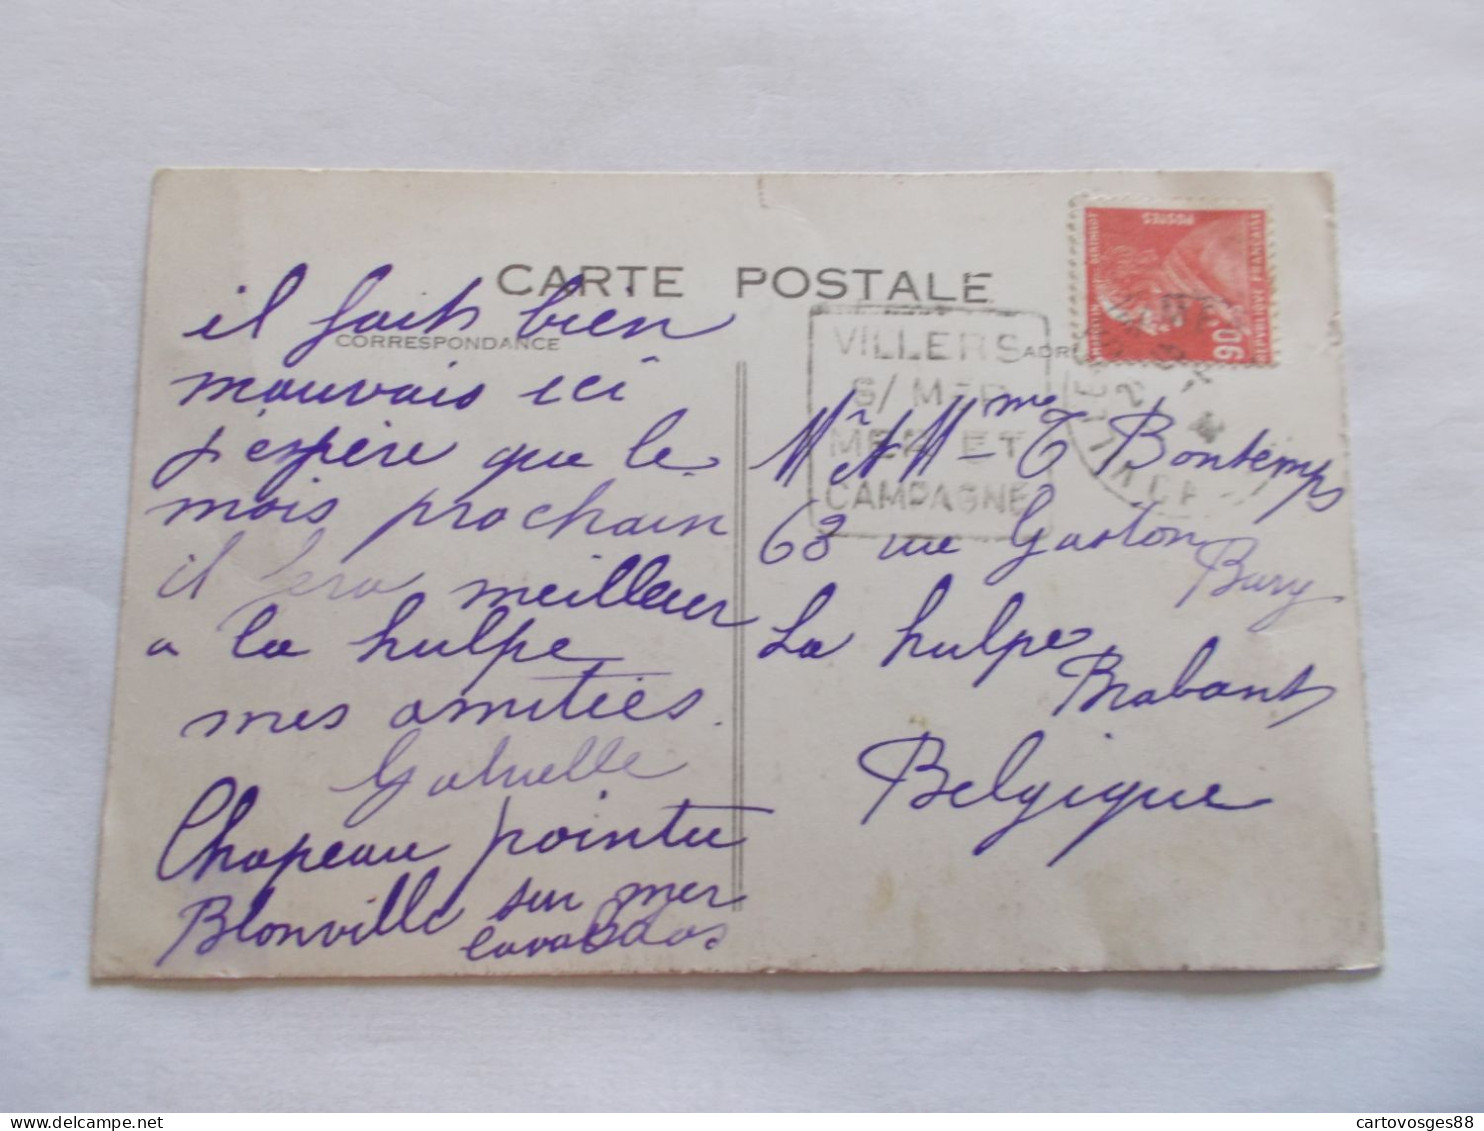 CARTE POSTALE
CORRESPONDANCE
il fait bien
mauvais ici
j'espère que le
mois prochain
il sera meilleur
a la hulpe
mes amitiés.
Gabrielle
Chapeau pointu
Blonville sur mer
cavalados
VILLERS
S/ MER
MER ET
CAMPAGNE
ADR
POSTES
REPUBLIQUE FRANCAISE
90
Mr et Mme T Bontemps
63 rue Gaston
Bary
La hulpe
Brabant
Belgique
cartovosges88